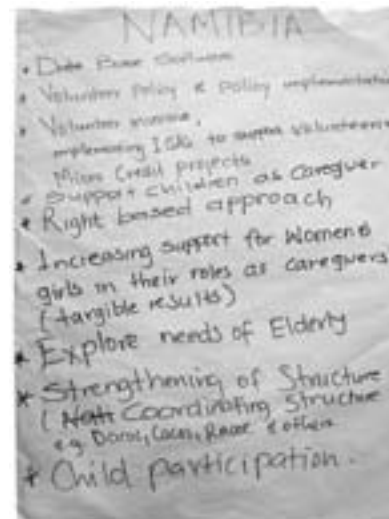 NAMIBIA
• Data Base Software
• Volunteer Policy & policy implementation
• Volunteer
implementing to support volunteers
Micro Credit projects
• Support children as caregiver
• Right based approach
• Increasing support for Women &
girls in their roles as caregivers
(tangible results)
* Explore needs of Elderly
* Strengthening of Structure
( Coordinating Structure
e.g & others
* Child participation.